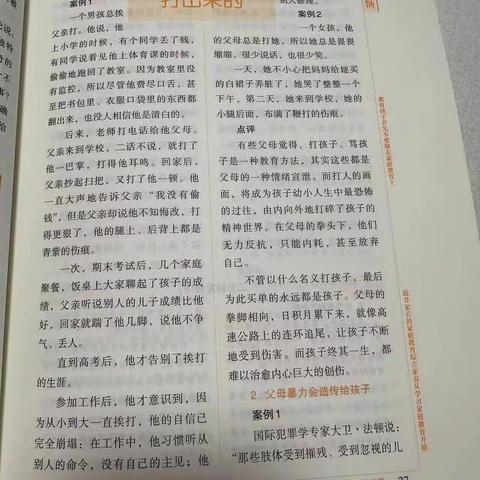 打出来的
案例1
一个男孩总挨
父亲打。他说,他
上小学的时候,有个同学丢了钱,
有同学说看见他上体育课的时候,
偷偷地跑回了教室。因为教室里没
有监控,所以尽管他费尽口舌,甚
至把书包里、衣服口袋里的东西都
翻出来,也没人相信他是清白的。
后来,老师打电话给他父母。
父亲来到学校,二话不说,就打了
他一巴掌,打得他耳鸣。回家后,
父亲抄起扫把,又打了他一顿。他
一直大声地告诉父亲“我没有偷
钱”,但是父亲却说他不知悔改,打
得更狠了,他的腿上、后背上都是
青紫的伤痕。
一次,期末考试后,几个家庭
聚餐,饭桌上大家聊起了孩子的成
绩,父亲听说别人的儿子成绩比他
好,回家就踹了他几脚,说他不争
气、丢人。
直到高考后,他才告别了挨打
的生涯。
参加工作后,他才意识到,因
为从小到大一直挨打,他的自信已
完全崩塌:在工作中,他习惯听从
别人的命令,没有自己的主见;他
案例2
一个女孩,他
的父母总是打她,所以她总是畏畏
缩缩,很少说话,也很少笑。
一天,她不小心把妈妈给她买
的白裙子弄脏了,她哭了整整一个
下午,第二天,她来到学校,她的
小腿后面,布满了鞭打的伤痕。
点评
有些父母觉得,打孩子、骂孩
子是一种教育方法,其实这些都是
父母的一种情绪宣泄。而打人的画
面,将成为孩子幼小人生中最恐怖
的过往,由内向外地打碎了孩子的
精神世界。在父母的拳头下,他们
无力反抗,只能内耗,甚至放弃
自己。
不管以什么名义打孩子,最后
为此买单的永远都是孩子。父母的
拳脚相向,日积月累下来,就像高
速公路上的连环追尾,让孩子不断
地受到伤害。而孩子终其一生,都
难以治愈内心巨大的创伤。
2. 父母暴力会遗传给孩子
案例1
国际犯罪学专家大卫·法顿说:
“那些肢体受到摧残、受到忽视的儿
提升家长的家庭教育综合素养从学习家庭教育开始
27